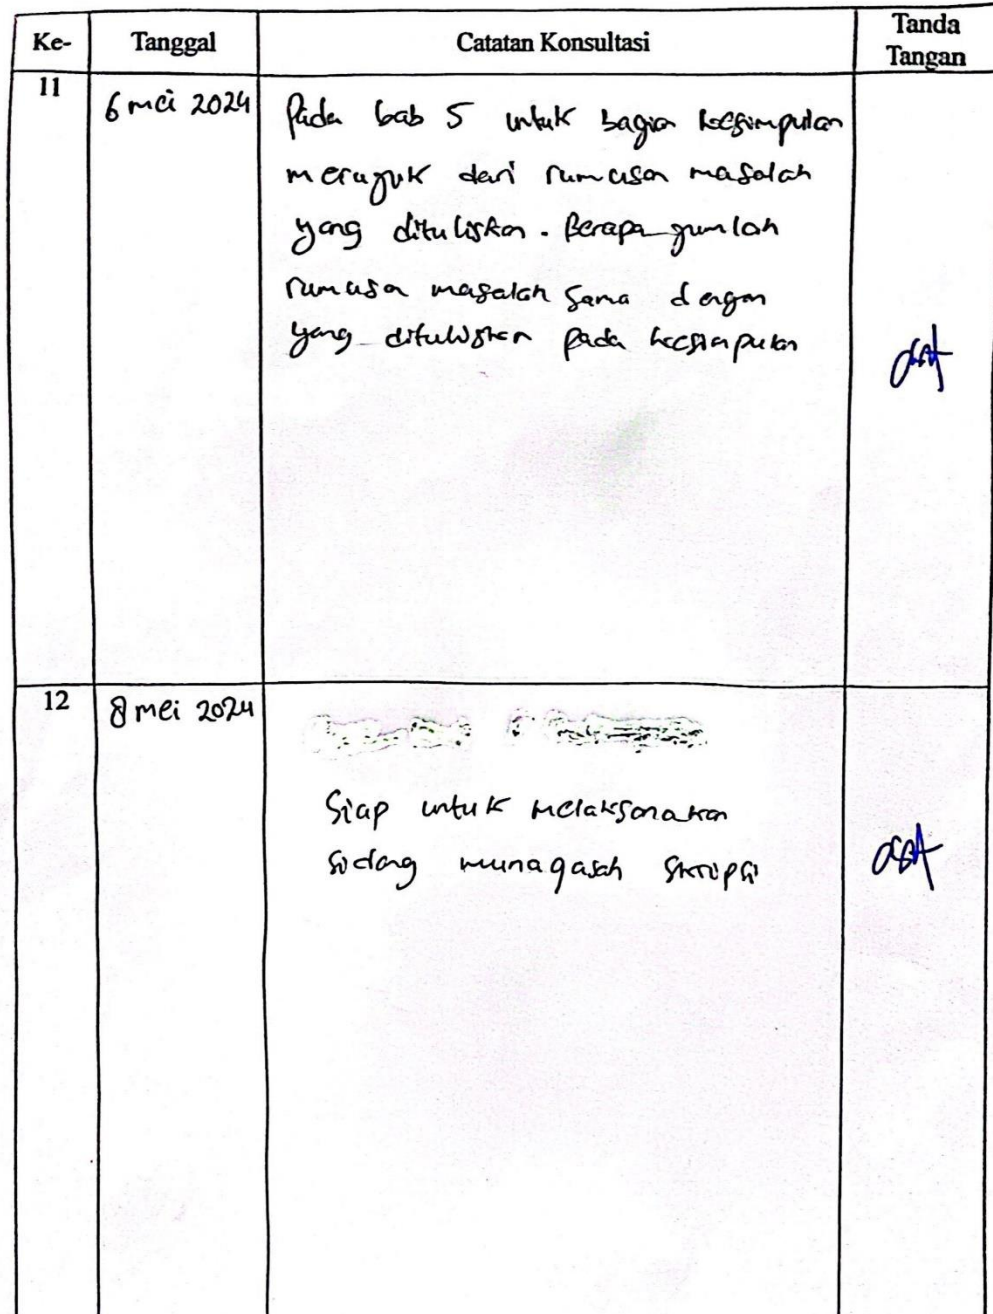 Ke- Tanggal Catatan Konsultasi Tanda Tangan
11
6 mei 2024 Pada bab 5 untuk bagian kesimpulan
merujuk dari rumusan masalah
yang dituliskan. Berapa jumlah
rumusan masalah sama dengan
yang dituliskan pada kesimpulan
12 8 mei 2024
Siap untuk melaksanakan
sidang munaqasah skripsi